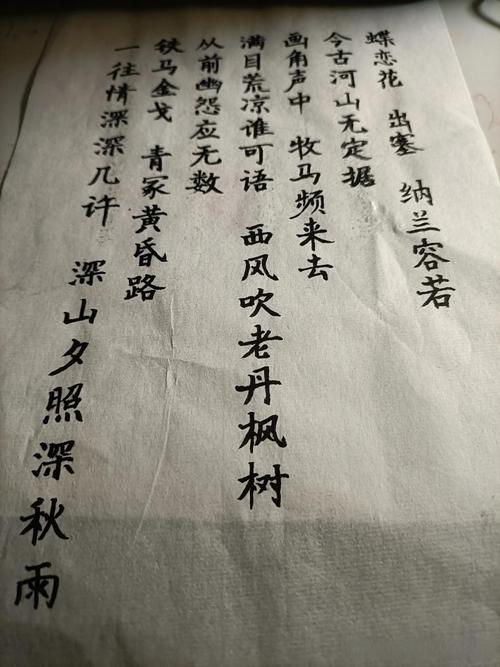 蝶恋花 出塞 纳兰容若
今古河山无定据
画角声中 牧马频来去
满目荒凉谁可语 西风吹老丹枫树
从前幽怨应无数
铁马金戈 青冢黄昏路
一往情深深几许 深山夕照深秋雨